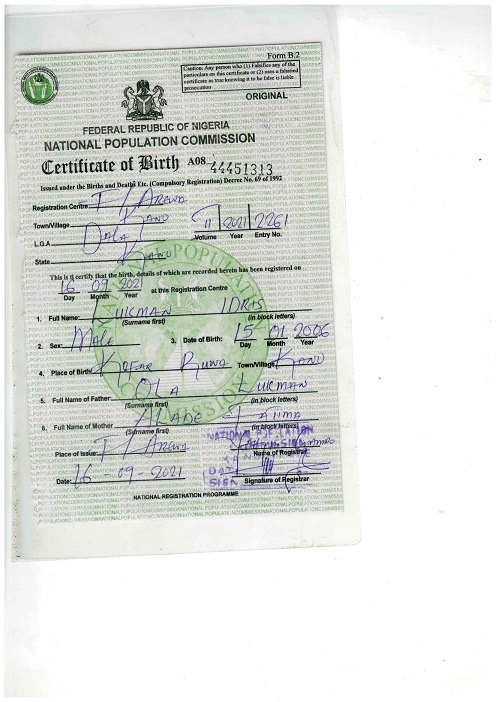 Form B.2
Caution: Any person who (1) Falsifies any of the
particulars on this certificate or (2) uses a falsified
certificate as true knowing it to be false is liable
prosecution
ORIGINAL
FEDERAL REPUBLIC OF NIGERIA
NATIONAL POPULATION COMMISSION
Certificate of Birth A08 44451313
Issued under the Births and Deaths Etc. (Compulsory Registration) Decree No. 69 of 1992
Registration Centre T/Arewa
Town/Village Kano
11 2021 2261
L.G.A Dala Volume Year Entry No.
State Kano
This is to certify that the birth, details of which are recorded herein has been registered on
16 09 2021 at this Registration Centre
Day Month Year
1. Full Name: LUKMAN IDRIS
(Surname first) (in block letters)
2. Sex: Male 3. Date of Birth: 15 01 2006
Day Month Year
4. Place of Birth Kofar Ruwa Town/Village Kano
5. Full Name of Father: OLA LUKMAN
(Surname first) (in block letters)
6. Full Name of Mother
(Surname first) (in block letters)
Place of Issue: T/Arewa
NATIONAL POPULATION
Name of Registrar
Date: 16-09-2021
SIGN
Signature of Registrar
NATIONAL REGISTRATION PROGRAMME